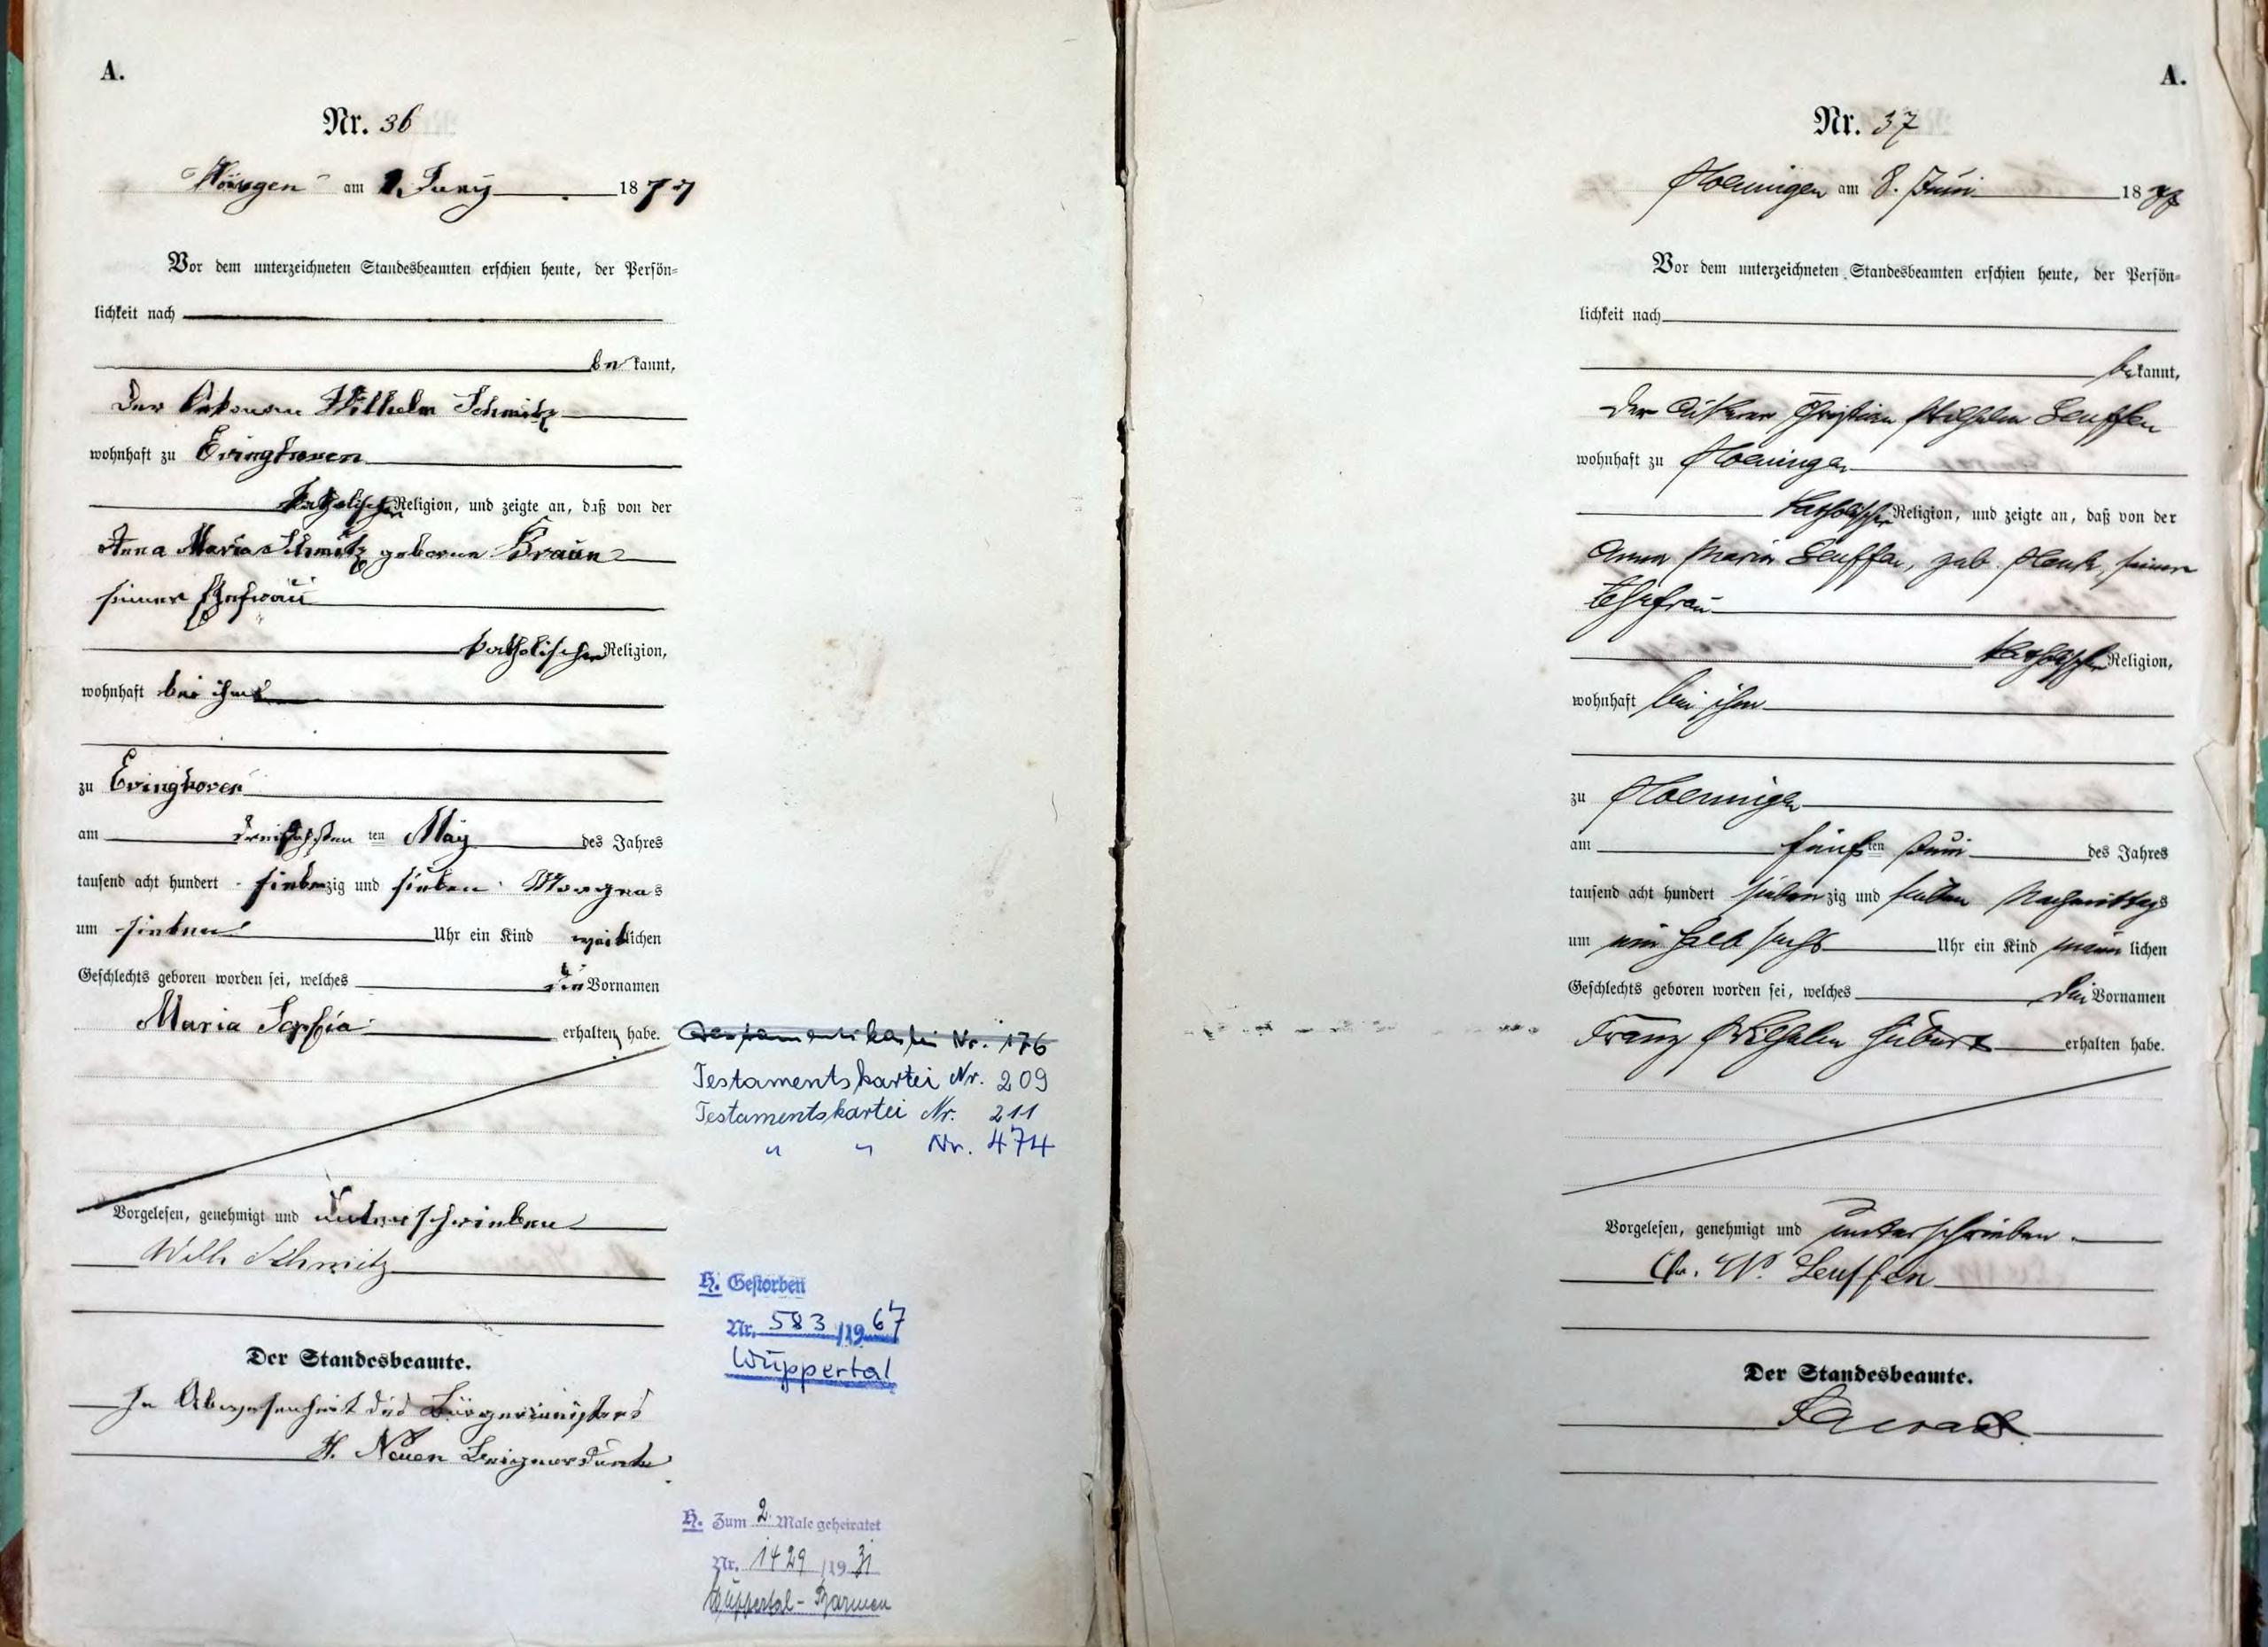 A.
Nr. 36
am 1. Juny 1877
Vor dem unterzeichneten Standesbeamten erschien heute, der Persön=
lichkeit nach
be kannt,
Der Oekonom Wilhelm Schmitz
wohnhaft zu Evinghoven
katholischer Religion, und zeigte an, daß von der
Anna Maria Schmitz geborene Braun
seiner Ehefrau
katholischer Religion,
wohnhaft bei ihm
zu Evinghoven
am dreißigsten ten May des Jahres
tausend acht hundert siebenzig und sieben Morgens
um sieben Uhr ein Kind weiblichen
Geschlechts geboren worden sei, welches die Vornamen
Maria Sophia erhalten habe.
Testamentskartei Nr. 176
Testamentskartei Nr. 209
Testamentskartei Nr. 211
" " Nr. 474
Vorgelesen, genehmigt und unterschrieben
Wilh Schmitz
H. Gestorben
Nr. 583/1967
Wuppertal
Der Standesbeamte.
In Abwesenheit des Bürgermeisters
H. Neuen Beigeordneter
H. Zum 2. Male geheiratet
Nr. 1429/1931
Wuppertal-Barmen
A.
Nr. 37
Hoeningen am 8. Juni 1877
Vor dem unterzeichneten Standesbeamten erschien heute, der Persön=
lichkeit nach
bekannt,
Der Ackerer Christian Wilhelm Leuffen
wohnhaft zu Hoeningen
katholischer Religion, und zeigte an, daß von der
Anna Maria Leuffen, geb. seiner
Ehefrau
katholischer Religion,
wohnhaft bei ihm
zu Hoeningen
am fünften Juni des Jahres
tausend acht hundert siebenzig und sieben Nachmittags
um ein halb sechs Uhr ein Kind männlichen
Geschlechts geboren worden sei, welches die Vornamen
Franz Wilhelm Hubert erhalten habe.
Vorgelesen, genehmigt und unterschrieben.
Chr. W. Leuffen
Der Standesbeamte.